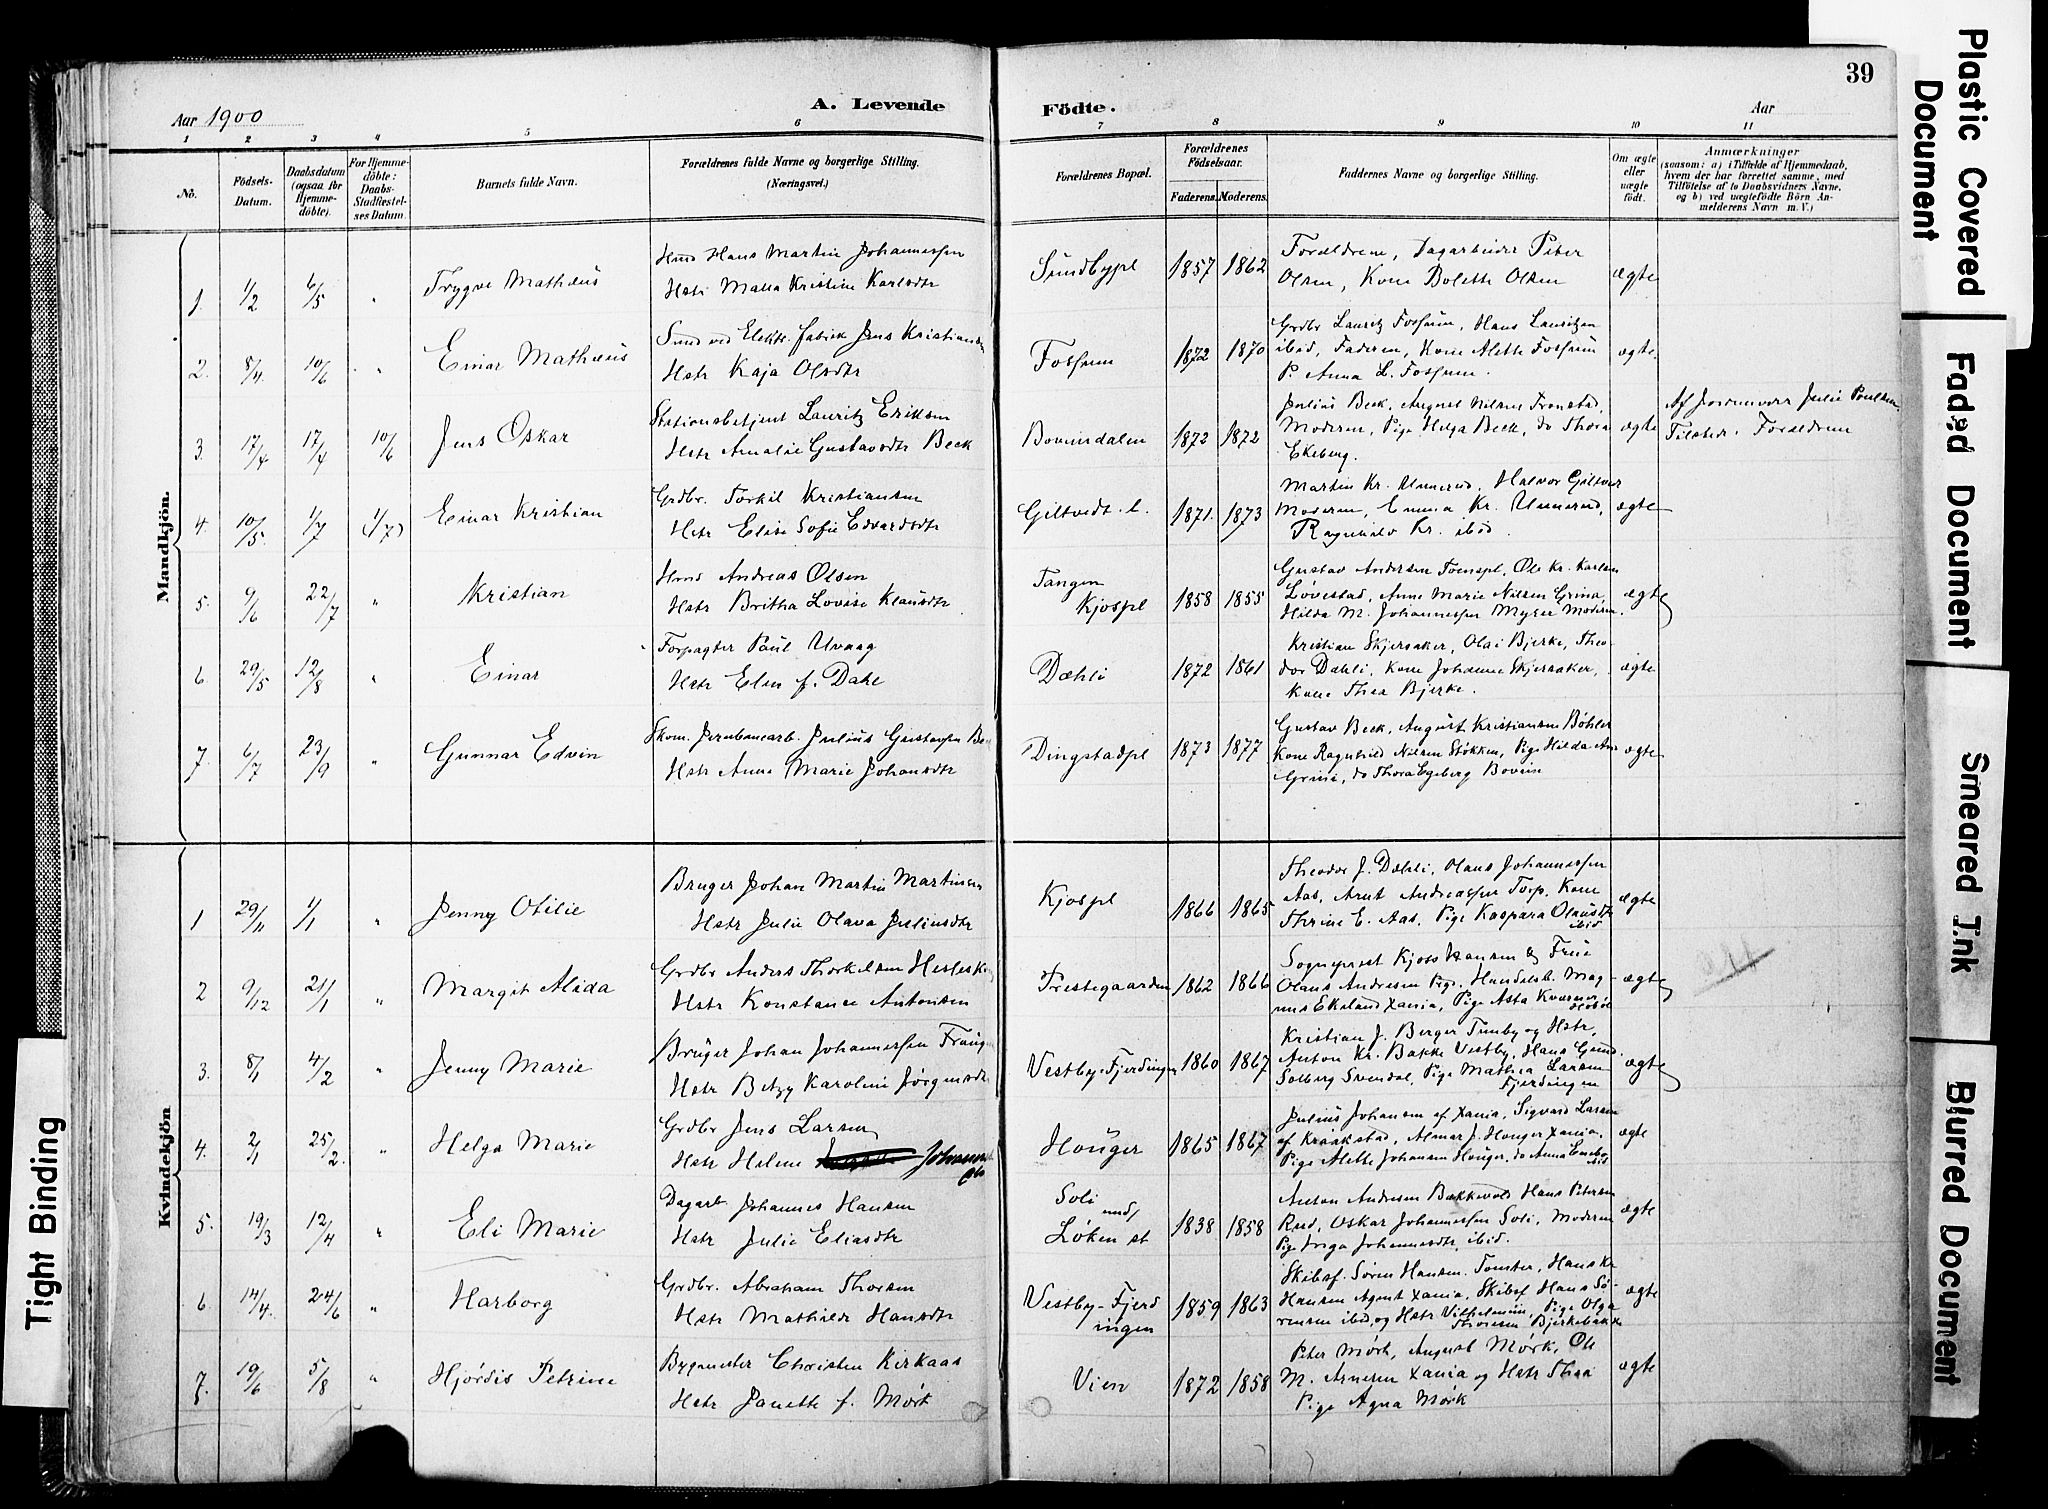 39
Aar 1900
A. Levende
Födte.
Aar
1 2 3 4 5 6 7 8 9 10 11
No.
Födsels-Datum.
Daabsdatum (ogsaa for Hjemme-döbte).
For Hjemme-döbte: Daabs-Stadfæstel-ses Datum.
Barnets fulde Navn.
Forældrenes fulde Navne og borgerlige Stilling.
(Næringsvei.)
Forældrenes Bopæl.
Forældrenes Födselsaar.
Faderens. Moderens.
Faddernes Navne og borgerlige Stilling.
Om ægte eller uægte födt.
Anmærkninger
(saasom: a) i Tilfælde af Hjemmedaab, hvem der har forrettet samme, med Tilföielse af to Daabsvidners Navne, og b) ved uægtefödte Börn An-melderens Navn m. V.)
Mandkjön.
1. 1/2 6/5 " Trygve Mathæus
Hmd Hans Martin Johannessen
Hstr Malla Kristine Karlsdtr
Sundbypl 1857 1862
Forældrene, Dagarbeider Peter
Olsen, Kone Bolette Olsen
ægte
2. 8/4 10/6 " Einar Mathæus
Smed ved Elektr. fabrik Jens Kristiansen
Hstr Kaja Olsdtr
Fossum 1872 1870
Grdbr Lauritz Fossum, Hans Lauritzen
ibid, Faderen, Kone Alette Fossum
P. Anna L. Fossum.
ægte
3. 17/4 17/4 10/6 Jens Oskar
Stationsbetjent Lauritz Eriksen
Hstr Amalie Gustavsdtr Beck
Bovimdalen 1872 1872
Julius Beck, August Nilsen Tronstad,
Moderen, Pige Helga Beck, do Thora
Ekeberg.
ægte
Af Jordemoder Julie Poulsen.
Tilstede: Forældrene
4. 10/5 1/7 (1/7) Einar Kristian
Grdbr. Torkil Kristiansen
Hstr Elise Sofie Edvardsdtr
Giltvedt l. 1871. 1873
Martin Kr. Unnerud, Halvor Giltved
Moderen, Emma Kr. Unnerud,
Ragnhild Kr. ibid.
ægte
5. 9/6 22/7 " Kristian
Hmd Andreas Olsen
Hstr Britha Lovise Klausdtr
Tangen
Kjospl 1858 1855
Gustav Andersen Toenspl, Ole Kr. Karlsen
Løvestad, Anne Marie Nilsen Grina,
Hilda M. Johannessen Myrer Moderen.
ægte
6. 29/5 12/8 " Einar
Forpagter Paul Uvaag
Hstr Elen f. Dahl
Dæhli 1872 1861
Kristian Skjersaker, Olai Bjerke, Theo-
dor Dæhli, Kone Johanne Skjersaker,
Kone Thea Bjerke.
ægte
7. 6/7 23/9 " Gunnar Edvin
Skom. Jernbanearb. Julius Gustavsen Be
Hstr Anne Marie Johansdtr
Dingstadpl 1873 1877
Gustav Beck, August Kristiansen Bøhler
Kone Ragnhild Nilsen Støkken, Pige Hilda An
Grini, do Thora Egeberg Bovim
ægte
Kvindekjön
1 29/11 1/1 " Jenny Otilie
Bruger Johan Martin Martinsen
Hstr Julie Olava Juliusdtr
Kjospl 1866 1865
Theodor J. Dæhli, Olaus Johannessen
Aas, Arnt Andreassen Torp. Kone
Thrine E. Aas, Pige Kaspara Olausdtr
ibid
ægte
2 9/12 21/1 " Margit Alida
Grdbr Anders Thorkelsen Hesles
Hstr Konstance Antonsen
Prestegaarden 1862 1866
Sogneprest Kjoss Hansen & Frue
Olaus Andresen Pige. Handelsb. Mag-
nus Ekelund Xania, Pige Asta Kværner
Hobøl
ægte
3. 8/1 4/2 " Jenny Marie
Bruger Johan Johannessen Traug
Hstr Betzy Karoline Jørgensdtr
Vestby-Fjerdingen 1860 1867
Kristian J. Berger Tomby og Hstr,
Anton Kr. Bakke Vestby, Hans Gund.
Solberg Svendal, Pige Mathea Larsen
Fjerdingen
ægte
4. 2/1 25/2. " Helga Marie
Grdbr Jens Larsen
Hstr Helene Johannes
dtr
Houger 1865 1867
Julius Johansen af Xania, Sigvard Larsen
af Kraakstad, Almar J. Houger Xania.
Pige Alette Johansen Houger, do Anna Eneb
ibid
ægte
5. 19/3 12/4 " Eli Marie
Dagarb Johannes Hansen
Hstr Julie Eliasdtr
Soli
und/
Løken st 1838 1858
Anton Andresen Bakkevold Hans Petersen
Rud, Oskar Johannessen Soli, Moderen
Pige Inga Johannesdtr, ibid.
ægte
6 14/4. 24/6 " Harborg
Grdbr. Abraham Thorsen
Hstr Mathilde Hansdtr
Vestby-Fjerd
ingen 1859 1863
Skibsf. Søren Hansen. Tomter, Hans Kr
Hansen Agent Xania, Skibsf Hans Sø-
rensen ibid, og Hstr Vilhelmine, Pige Olga
Thoresen Bjerkebakke
ægte
7. 19/6 5/8 " Hjørdis Petrine
Bygmester Christen Kirkaas
Hstr Janette f. Mørk
Vien 1872 1858
Peter Mørk, August Mørk, Ole
M. Arnesen Xania og Hstr Thea
Pige Agna Mørk
ægte
Tight Binding
Plastic Covered Document
Faded Document
Smeared Ink
Blurred Document